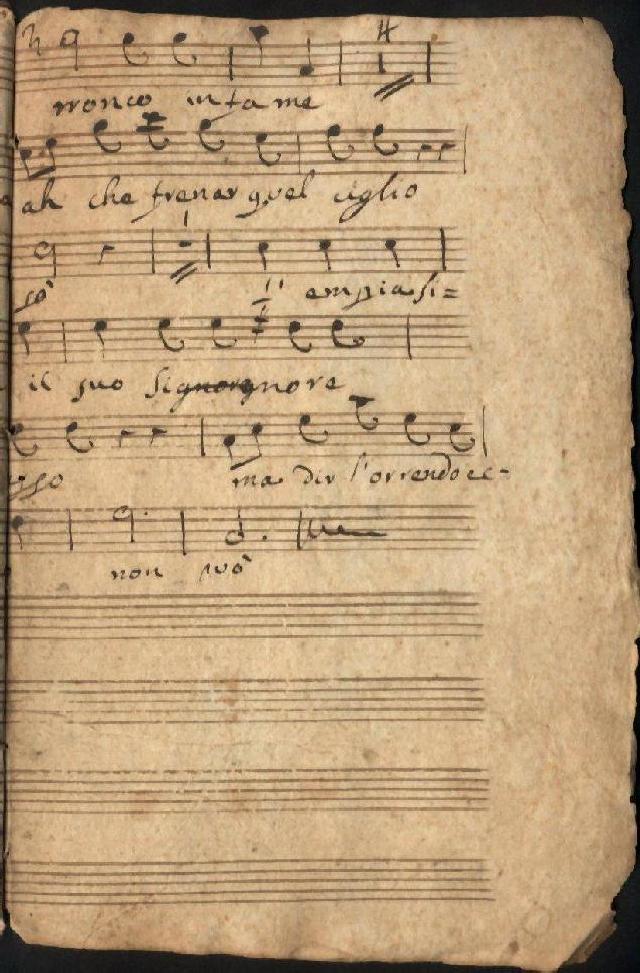 tronco infame
ah che frenar quel ciglio
so
l'empia si=
il suo signorgnore
esso ma dir l'orrendo ec-
non può